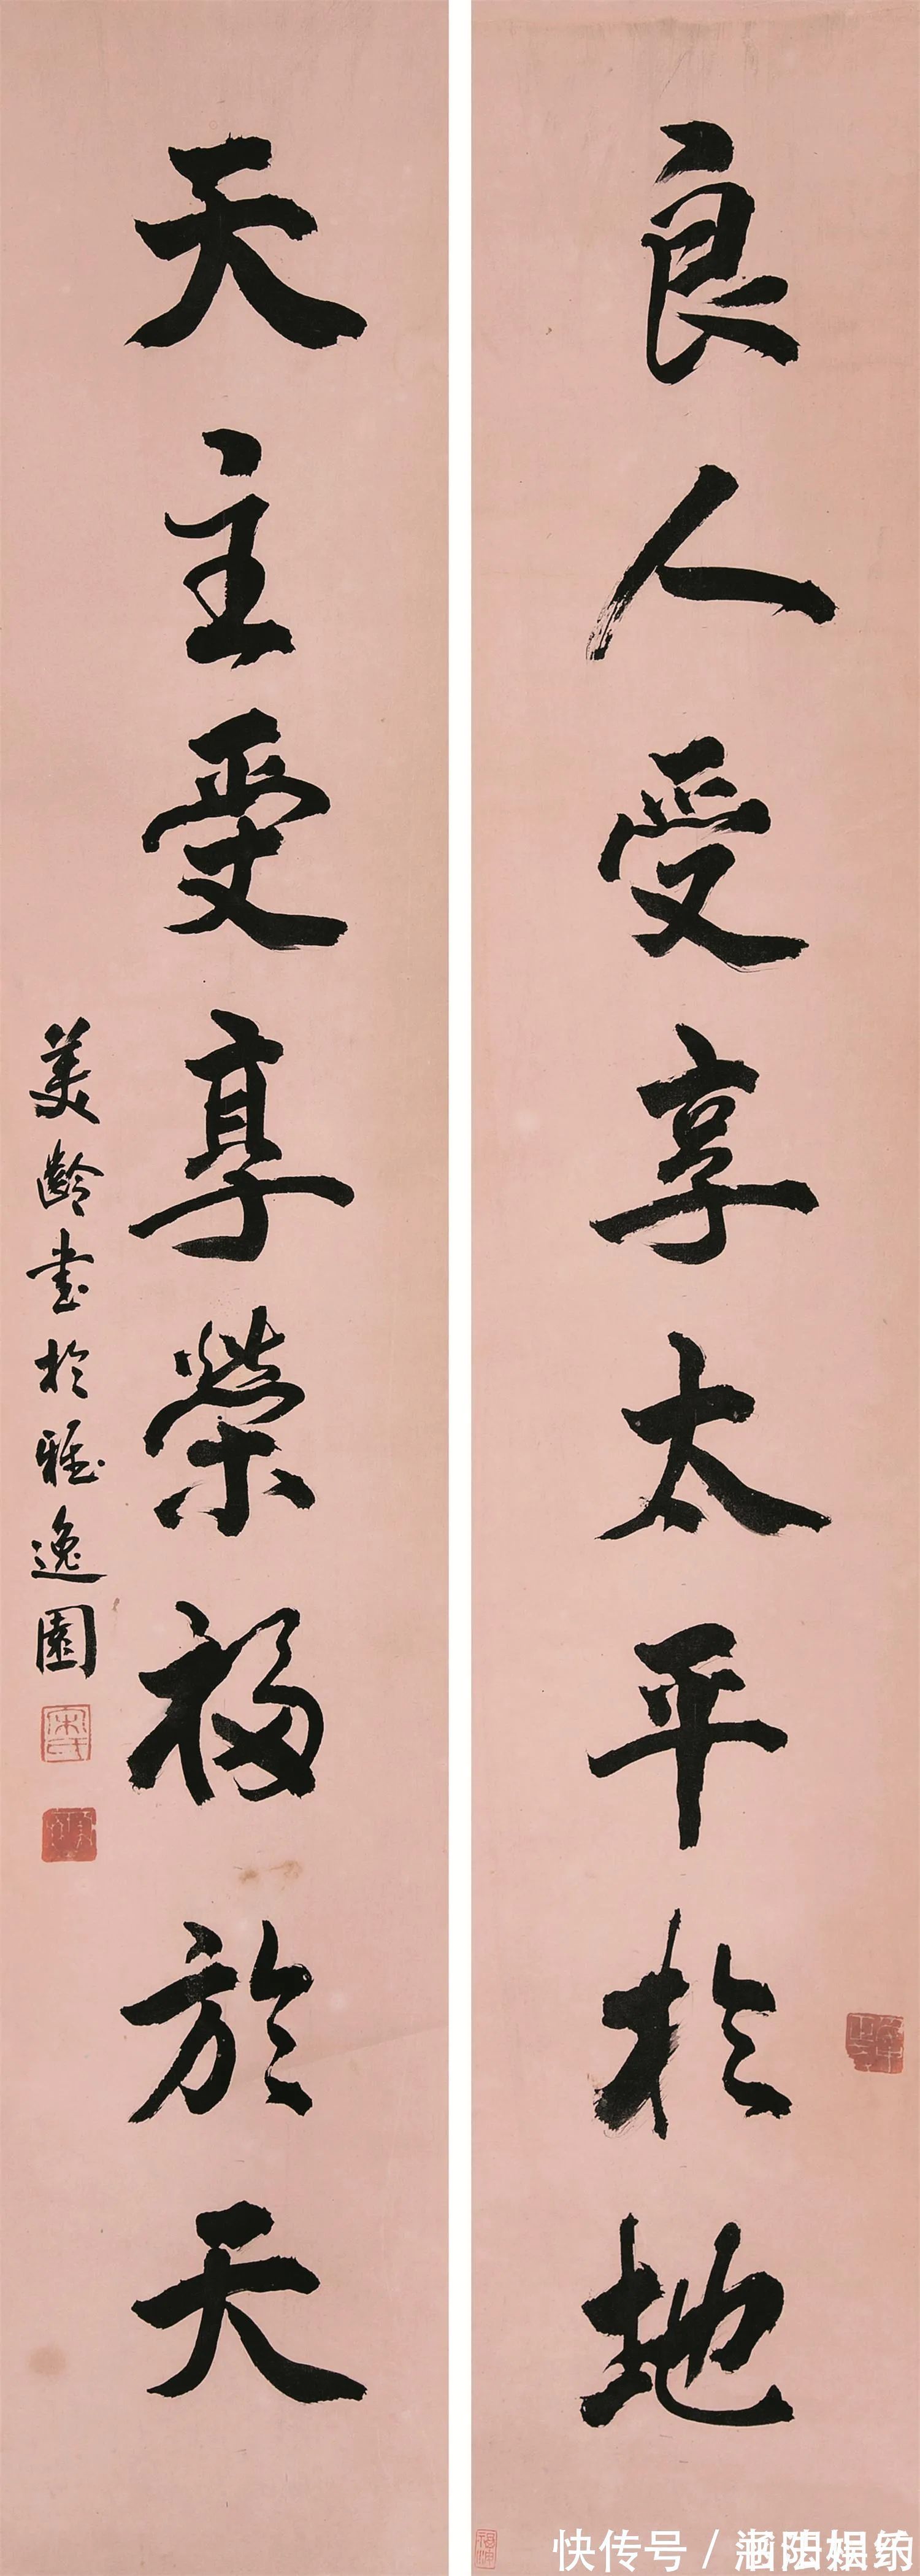 良人受享太平於地
天主受享榮福於天
美齡書於雅逸園
宋氏
快传号/